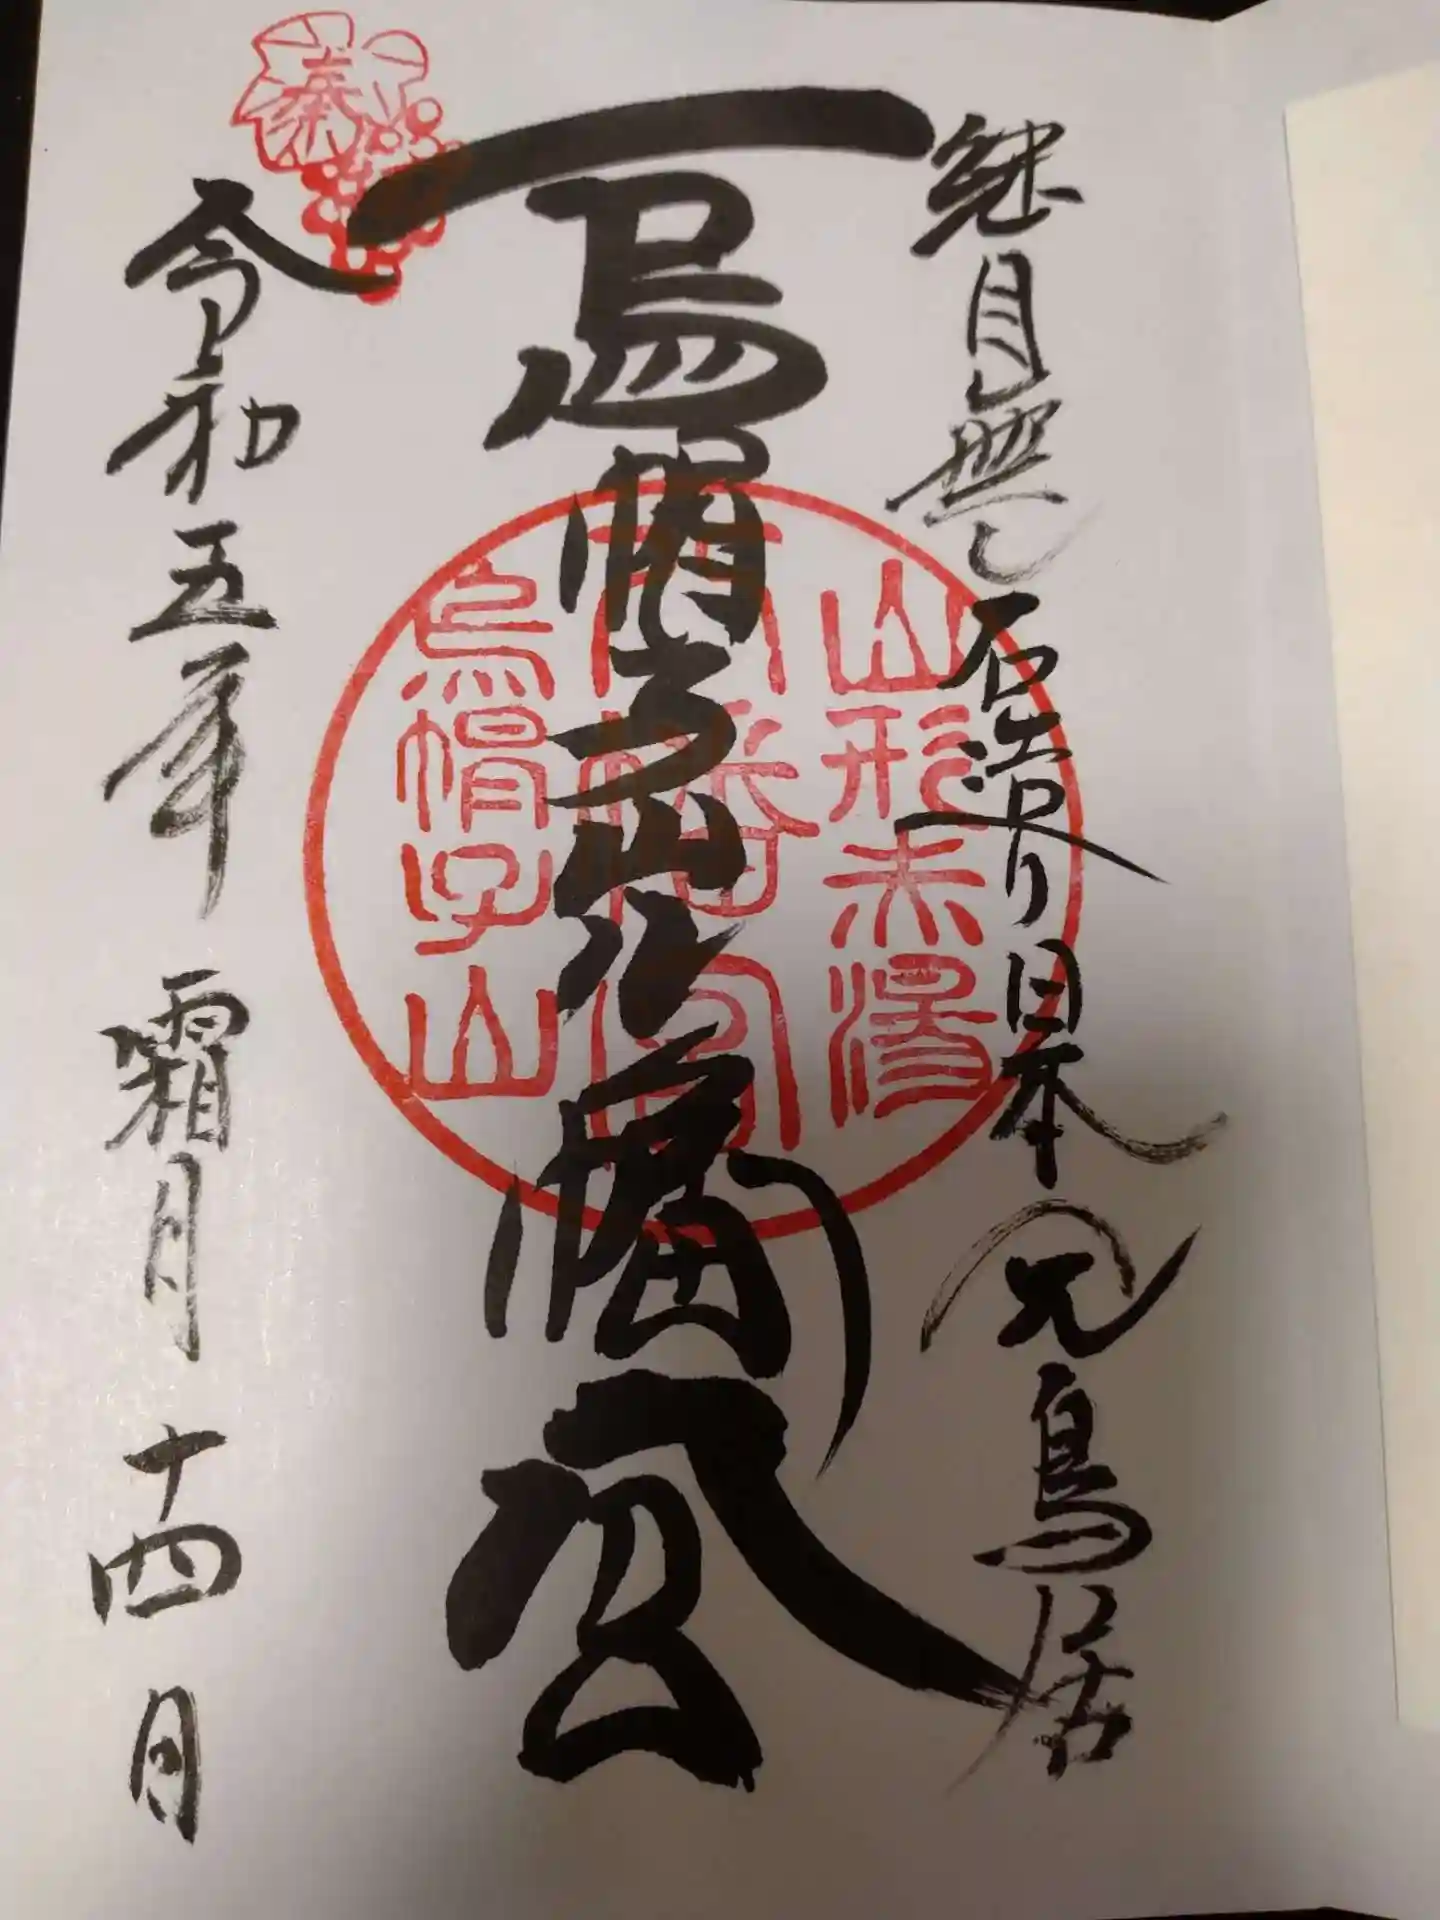 奉
継目無し石造り日本 鳥居
烏帽子山八幡宮
山形赤湯
八幡宮
烏帽子山
令和五年 霜月 十四日